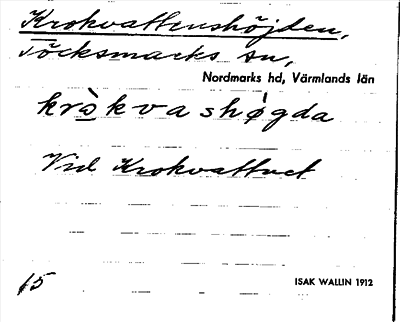 Krokvattenshöjden,
Töcksmarks sn,
Nordmarks hd, Värmlands län
kròkvashøgda
Vid Krokvattnet
15
ISAK WALLIN 1912